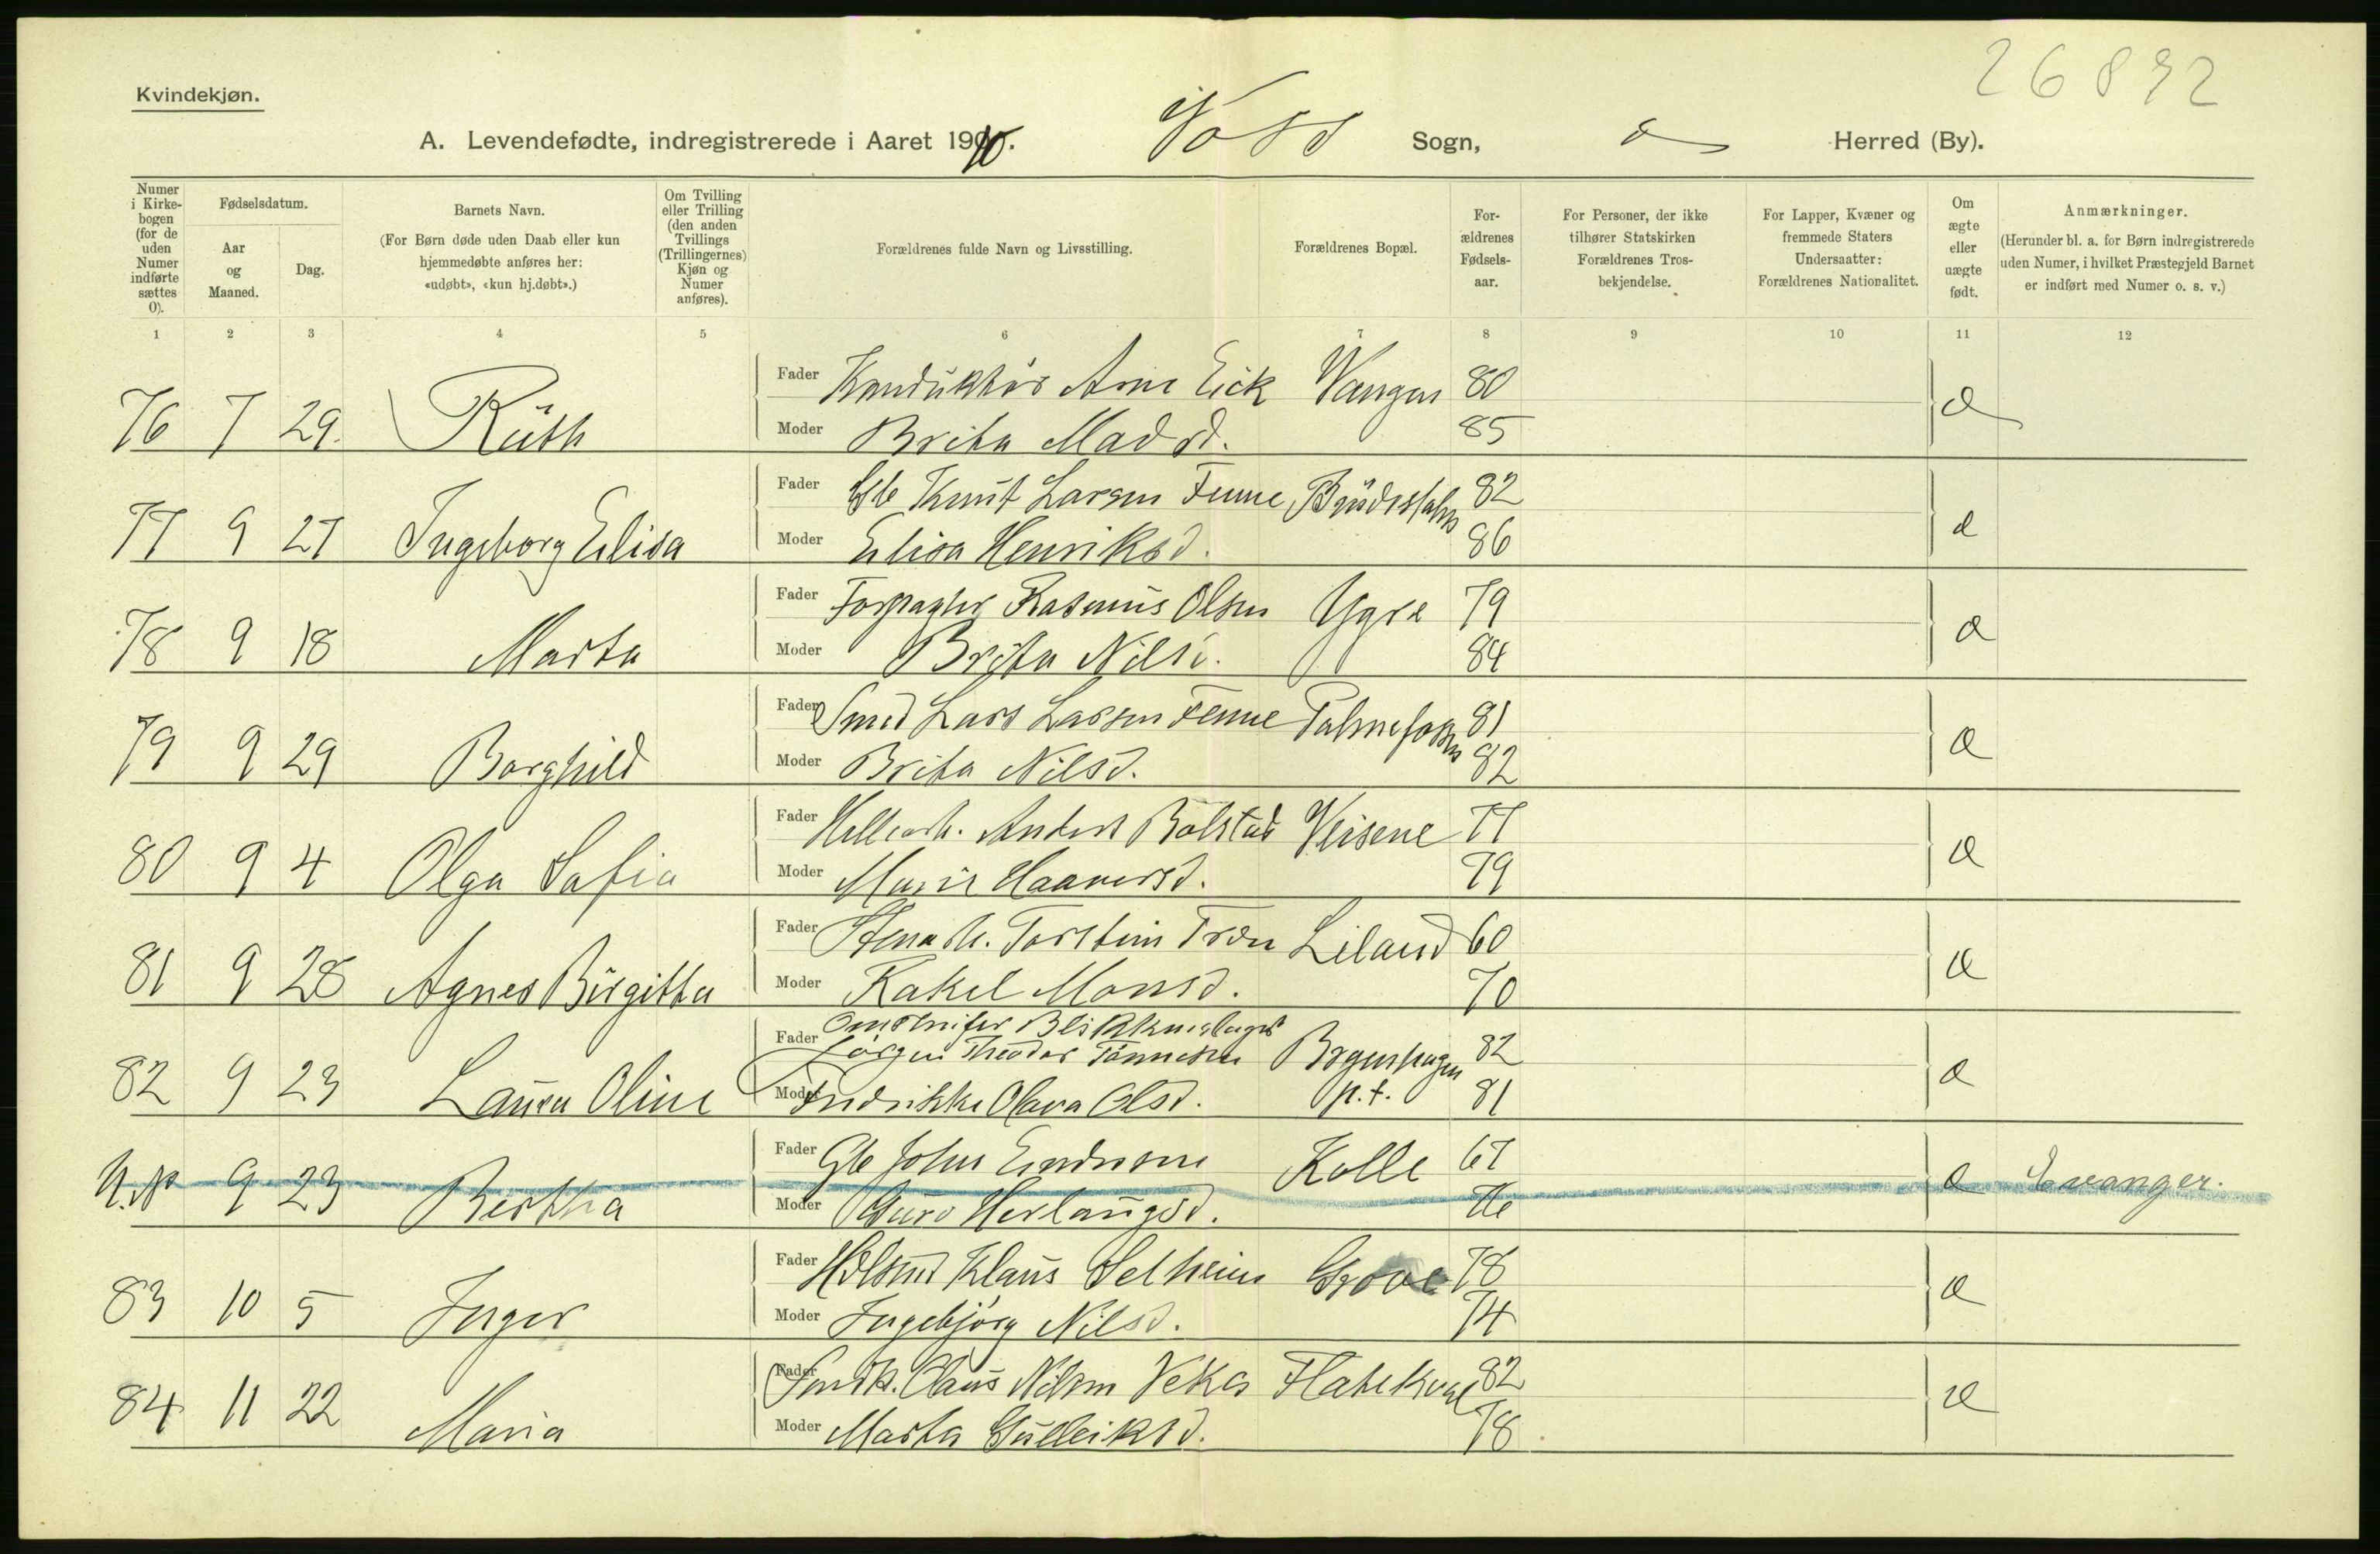 26892
Kvindekjøn.
A. Levendefødte, indregistrerede i Aaret 1910. Voss Sogn, Herred (By).
Numer i Kirkebogen (for de uden Numer indførte sættes 0).
Fødselsdatum.
Aar og Maaned.
Dag.
Barnets Navn.
(For Børn døde uden Daab eller kun hjemmedøbte anføres her: «udøbt», «kun hj.døbt».)
Om Tvilling eller Trilling (den anden Tvillings (Trillingernes) Kjøn og Numer anføres).
Forældrenes fulde Navn og Livsstilling.
Forældrenes Bopæl.
For-ældrenes Fødsels-aar.
For Personer, der ikke tilhører Statskirken Forældrenes Tros-bekjendelse.
For Lapper, Kvæner og fremmede Staters Undersaatter: Forældrenes Nationalitet.
Om ægte eller uægte født.
Anmærkninger.
(Herunder bl. a. for Børn indregistrerede uden Numer, i hvilket Præstegjeld Barnet er indført med Numer o. s. v.)
1 2 3 4 5 6 7 8 9 10 11 12
Fader Konduktør Arne Eick Vangen 80
76 7 29. Ruth Moder Brita Madsd. 85 æ
Fader Gb Knut Larsen Fenne 82
77 9 27 Ingeborg Elisa Moder Elisa Henriksd. 86 æ
Fader Forpagter Rasmus Olsen Ygre 79
78 9 18 Marta Moder Brita Nilsd. 84 æ
Fader Smed Lars Larsen Fenne Palmefossen 81
79 9 29 Borghild Moder Brita Nilsd. 82 æ
Fader Anders Bolstad Veisene 77
80 9 4 Olga Sofia Moder Marie Haaversd. 79 æ
Fader Torstein Træn Liland 60
81 9 28 Agnes Birgitta Moder Rakel Monsd. 70 æ
Omstreifer Blikkenslager
Fader Jørgen Theodor Tønnesen 82
82 9 23 Laura Oline Moder Fredrikke Olava Olsd. p.t. 81 æ
Fader Gb John Eindresen Kolle 67
U.N 9 23 Bertha Moder Guro Herlaugsd. 76 æ Evanger.
Fader Klaus Selheim Grove 78
83 10 5 Inger Moder Ingebjørg Nilsd. 74 æ
Fader Claus Nilsen Vekes Flatekval 82
84 11 22 Maria Moder Marta Gulleiksd. 78 æ